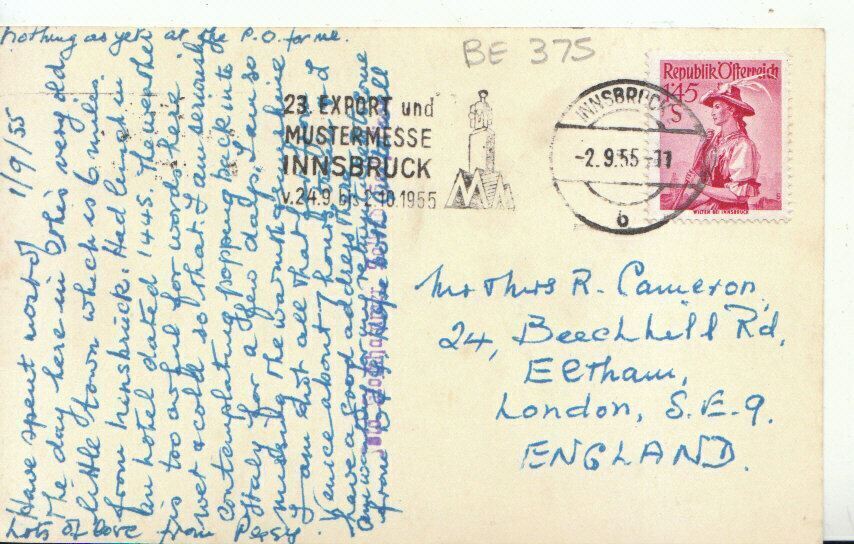 Nothing as yet at the P.O. for me.
1/9/55
Have spent most of
the day here in this very old
little town which is 6 miles
from Innsbruck. Had lunch in
an hotel dated 1445. The weather
is too awful for words here
wet & cold so that I am seriously
contemplating popping back into
Italy for a few days. I am so
missing the warmth & sunshine
I am not all that far from
Venice about 7 hours & I
have a good address there
for my return
from
Lots of love from Peggy.
BE 375
23. EXPORT und
MUSTERMESSE
INNSBRUCK
v. 24.9. bis 2.10.1955
INNSBRUCK
-2.9.55-11
b
Republik Österreich
1'45
S
WILTEN BEI INNSBRUCK
Mr & Mrs R. Cameron,
24, Beechhill Rd,
Eltham,
London, S.E.9.
ENGLAND.